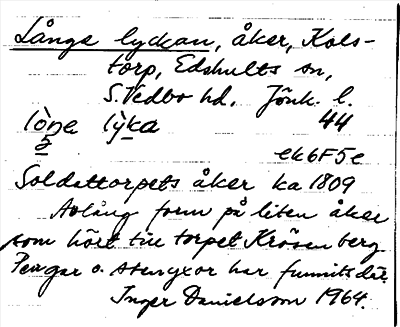 Långe lyckan, åker, Kols-
torp, Edshults sn,
S. Vedbo hd. Jönk. l.
lòŋa lỳka 44
2
ek6F5e
Soldattorpets åker ka 1809
Avlång form på liten åker
som hört till torpet Krösenberg
Pengar o. stenyxor har funnits där.
Inger Danielsson 1964.